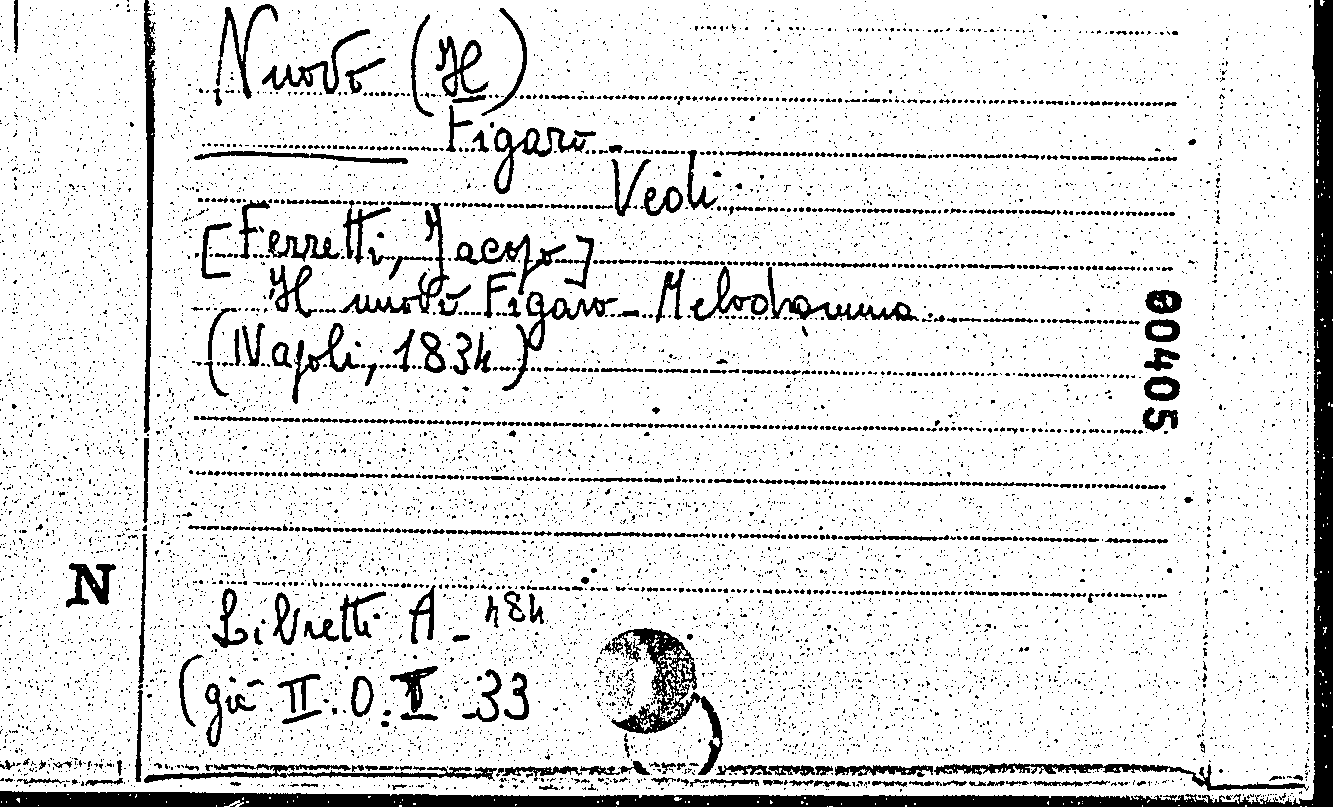 Nuovo (Il)
Figaro -
Vedi:
[Ferretti, Jacopo]
Il nuovo Figaro - Melodramma...
(Napoli, 1834)
00405
N
Libretti A - 484
(già II. O. V - 33